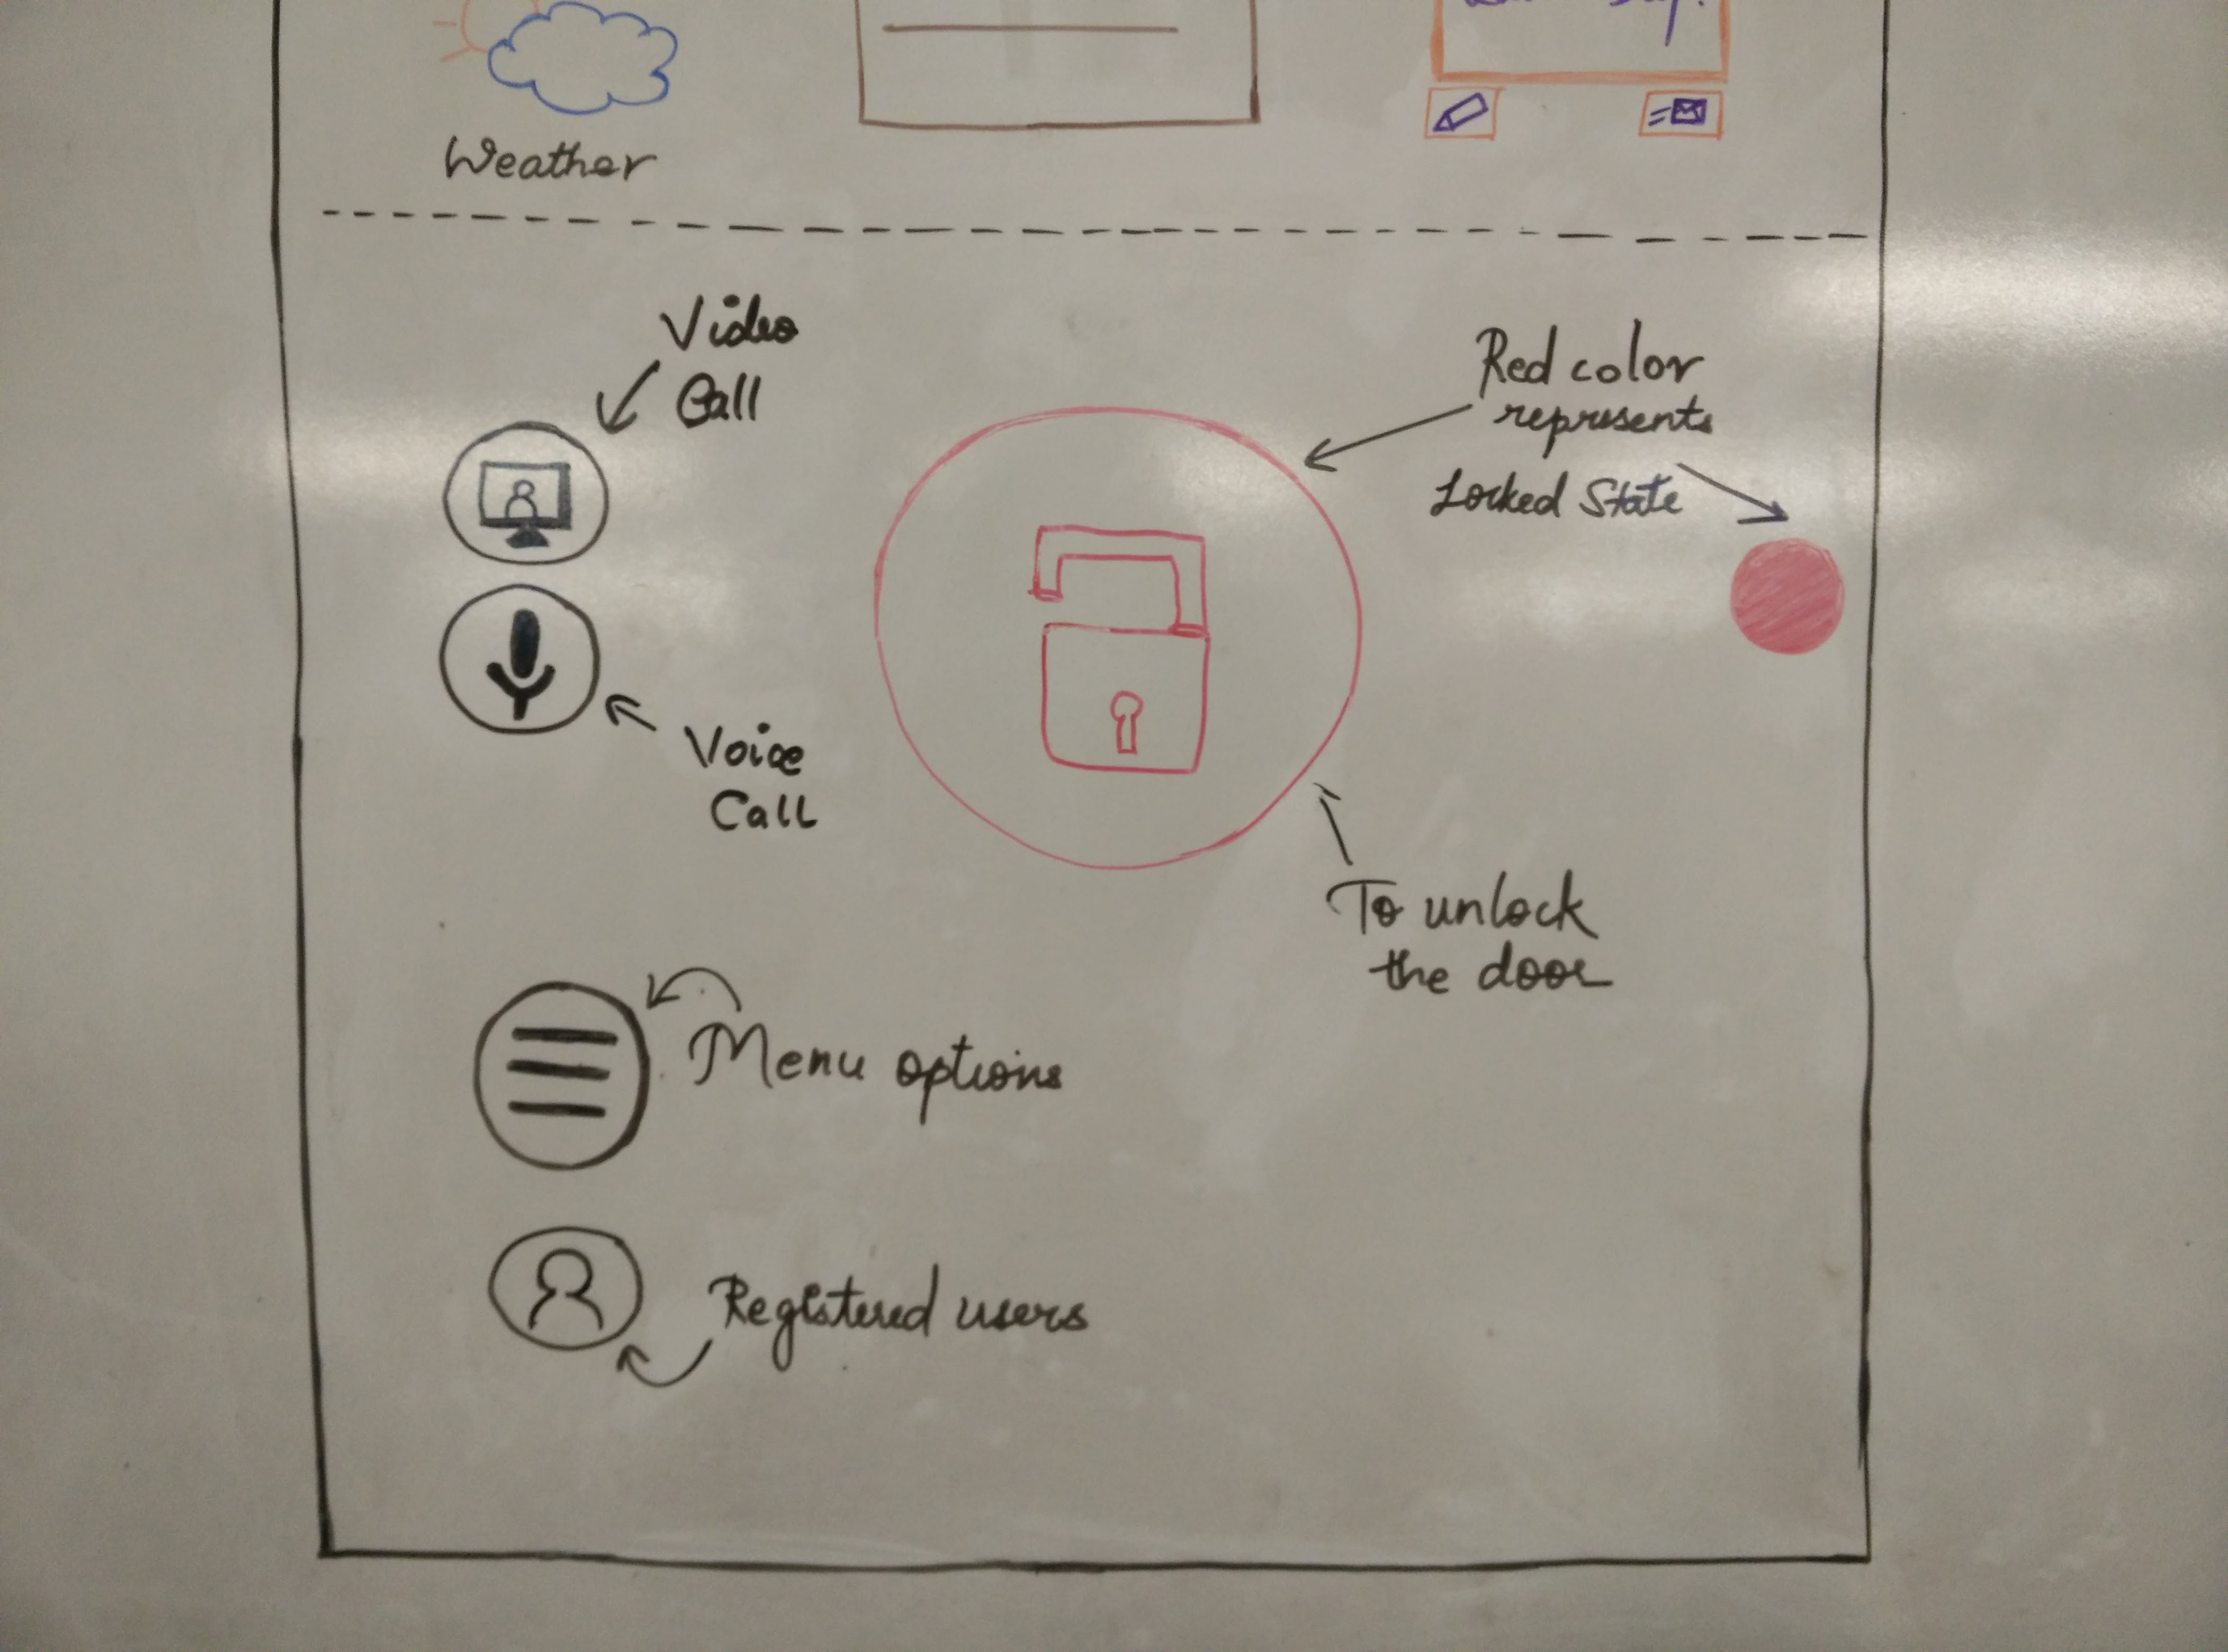 Weather
Video
Call
Red color
represents
Locked State
Voice
Call
To unlock
the door
Menu options
Registered users